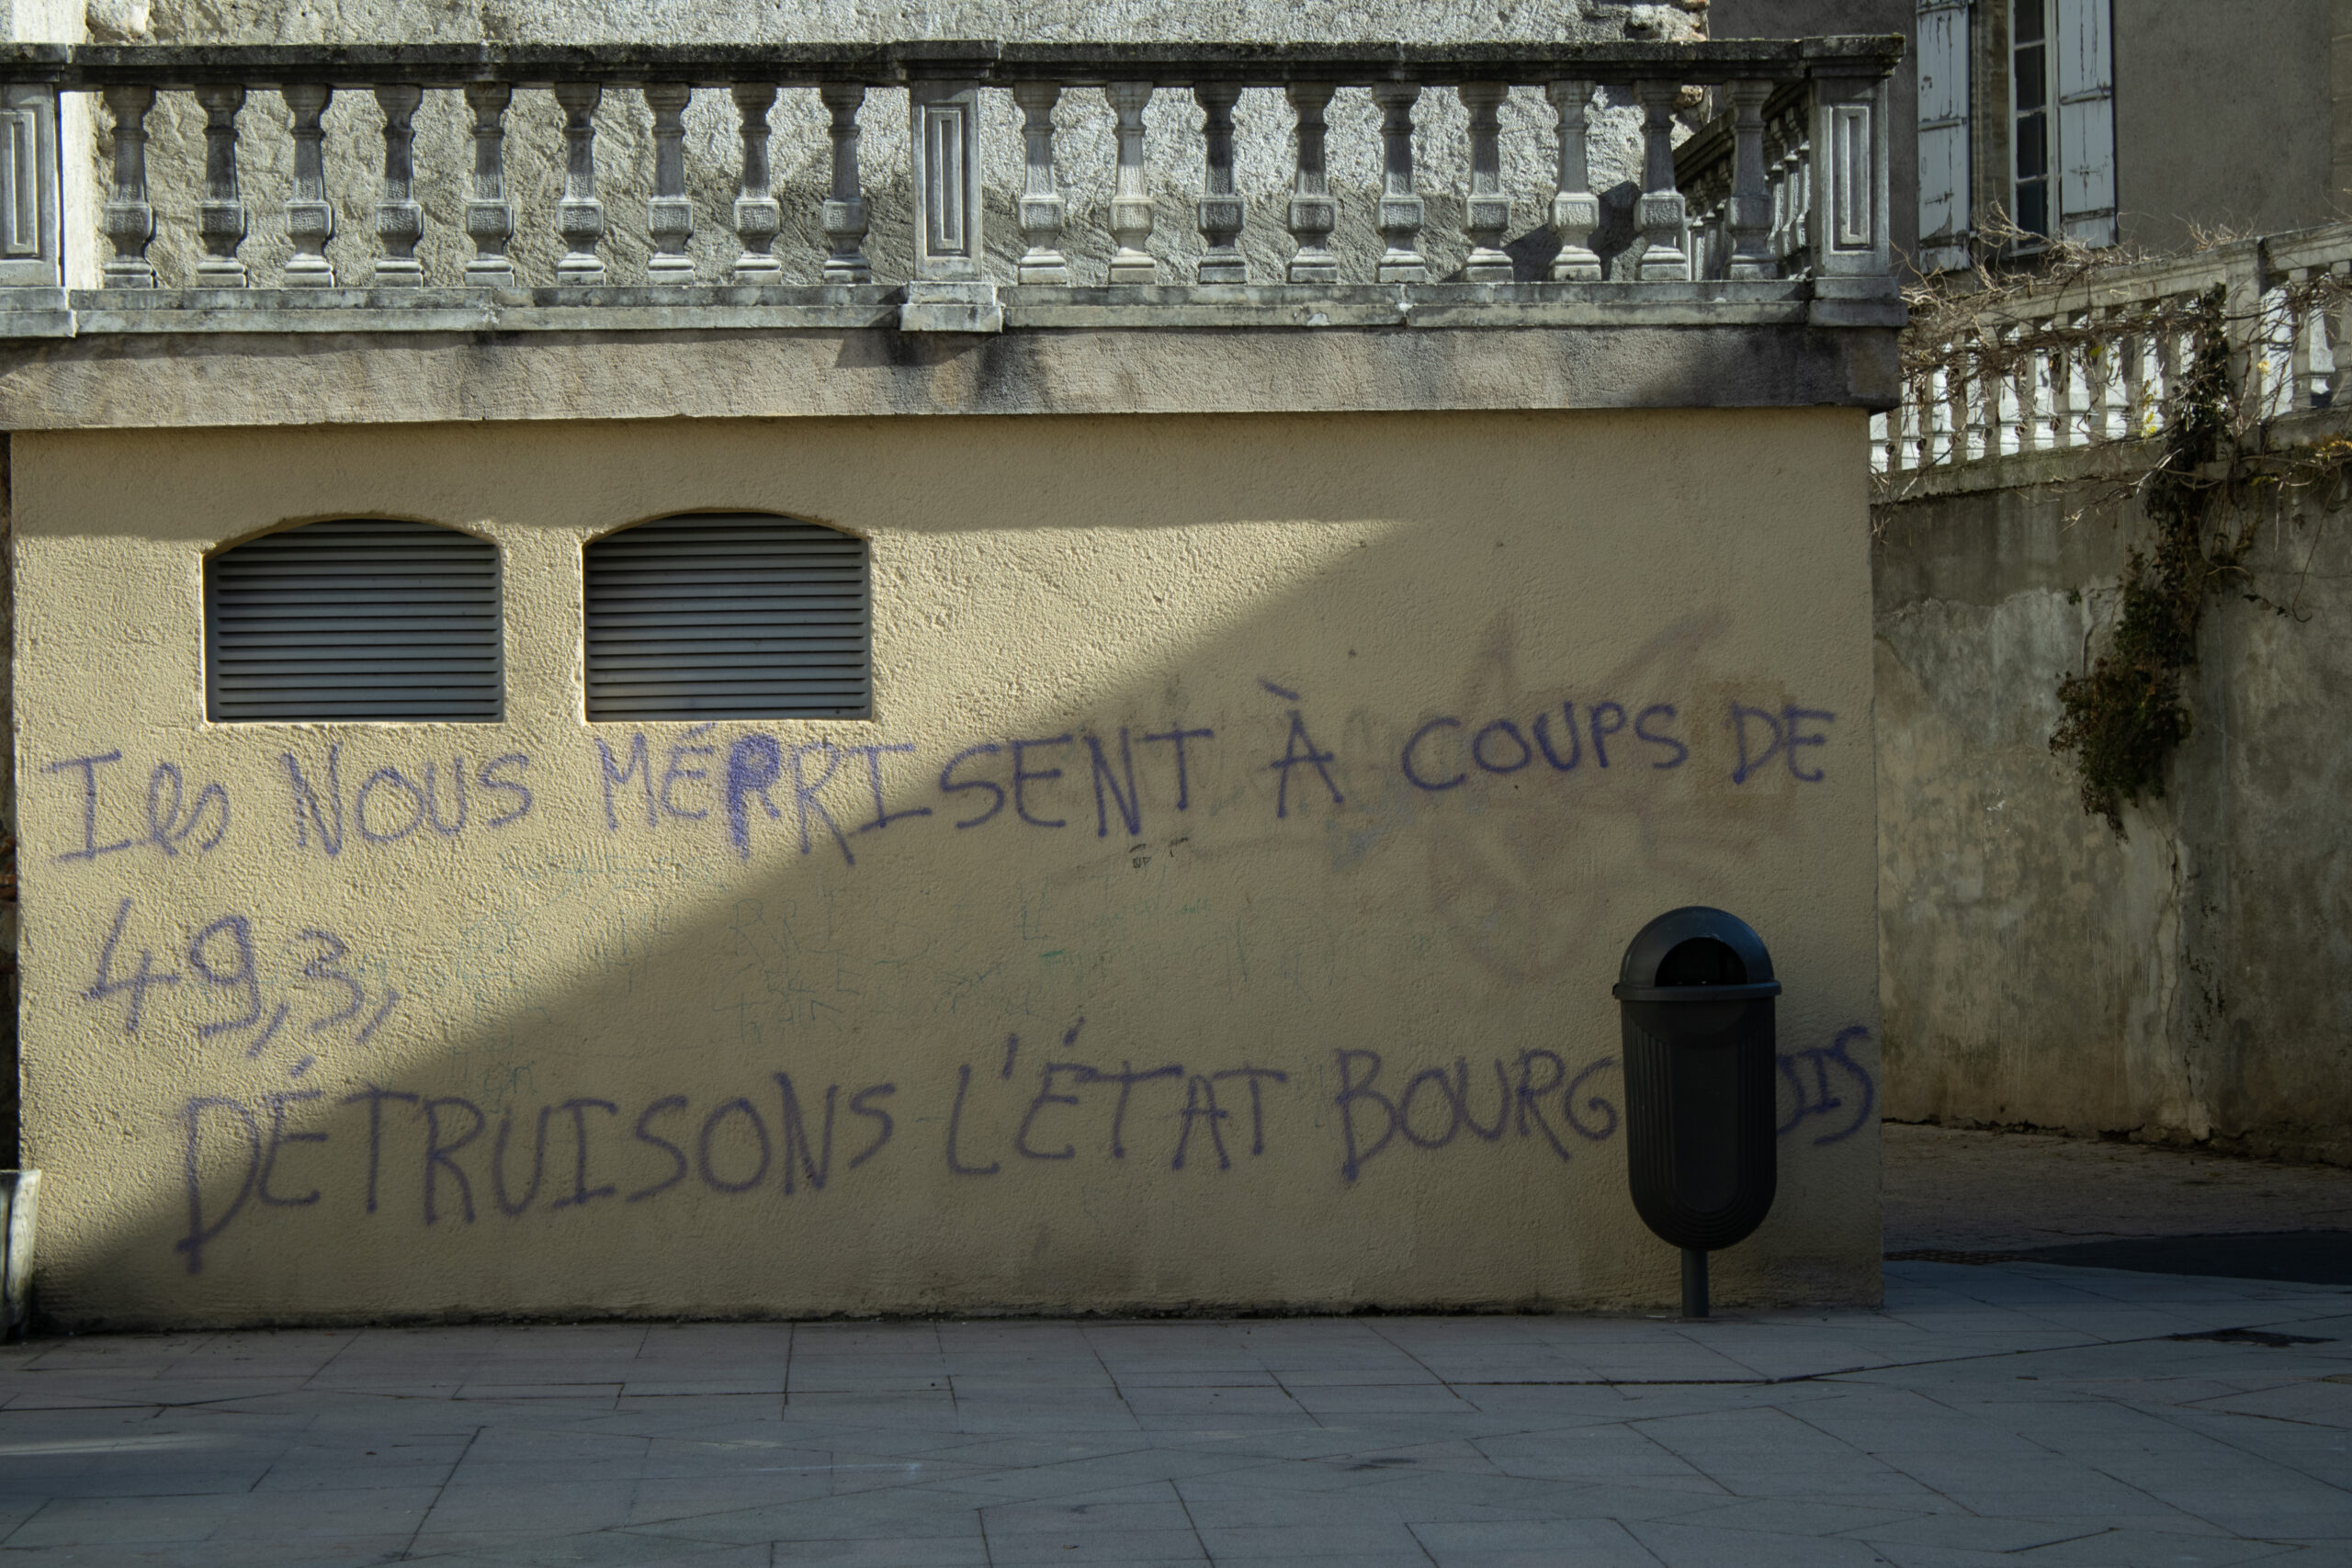 Ils NOUS MÉPRISENT À COUPS DE
49,3,
DÉTRUISONS L'ÉTAT BOURG OIS